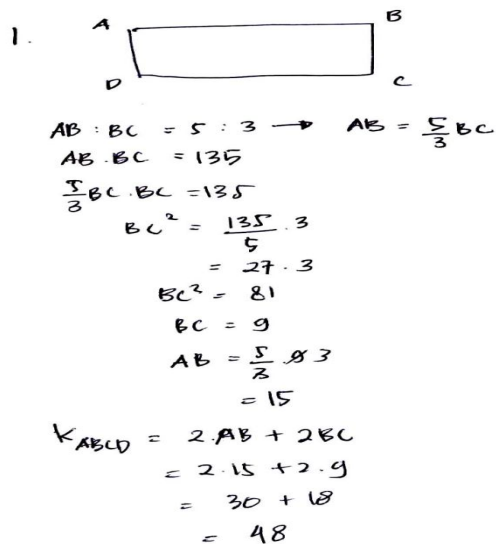 1.
A B
D C
AB : BC = 5 : 3 → AB = 5/3 BC
AB . BC = 135
5/3 BC . BC = 135
BC² = 135/5 . 3
= 27 . 3
BC² = 81
BC = 9
AB = 5/3 . 9 3
= 15
K ABCD = 2 . AB + 2BC
= 2 . 15 + 2 . 9
= 30 + 18
= 48